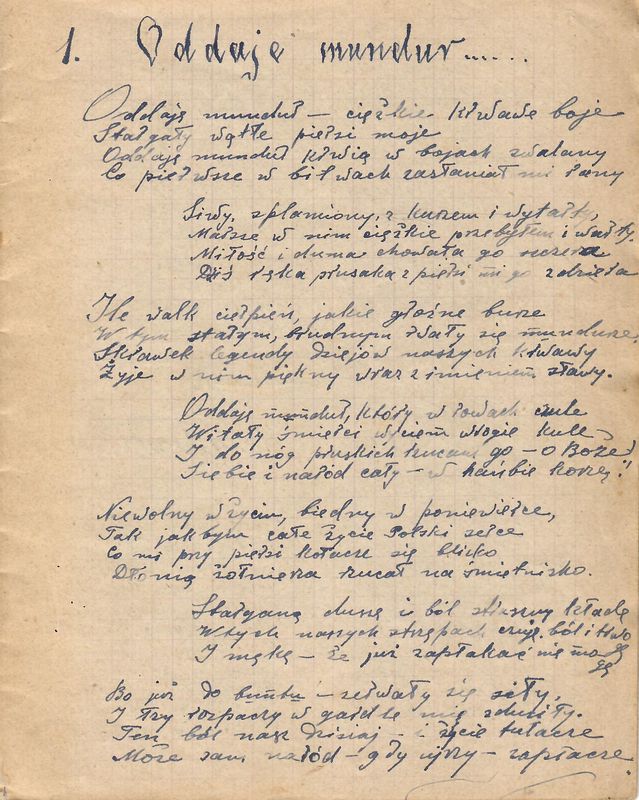 1. Oddaję mundur......
Oddaję mundur – ciężkie krwawe boje
Stargały wątłe piersi moje
Oddaję mundur krwią w bojach zwalany
Co pierwsze w bitwach zasłaniał mi rany
Siwy, splamiony, z kurzem i wytarty,
Marsze w nim ciężkie przebyłem i warty.
Miłość i duma chowała go szczera
Dziś ręka prusaka z piersi mi go zdziera
Ile walk cierpień, jakie głośne burze
W tym starym, brudnym rwały się mundurze,
Skrawek legendy dziejów naszych krwawy
Żyje w nim piękny wraz z imieniem sławy.
Oddaję mundur, który w rowach czule
Witały śmierci wyciem wrogie kule
I do nóg pruskich rzucam go – o Boże!
Siebie i naród cały – w hańbie korzę!
Niewolny w życiu, biedny w poniewierce,
Tak jakbym całe życie Polski serce
Co mi przy piersi kołacze się blisko
Dłonią żołnierza rzucał na śmietnisko.
Stargana duszę i ból straszny kładę
W tych naszych strzępach czuję ból i
I mękę – że już zapłakać nie mogę
Bo już do buntu – zerwały się siły,
I łzy rozpaczy w gardle mię zdusiły.
Ten ból nasz dzisiaj – i życie tułacze
Może sam naród – gdy ujrzy – zapłacze